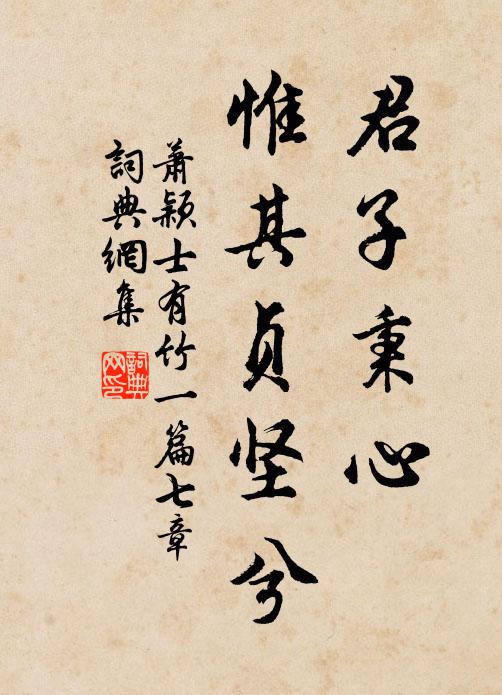 君子秉心
惟其贞坚兮
萧颖士有竹一篇七章
詞典網集
詞典网印